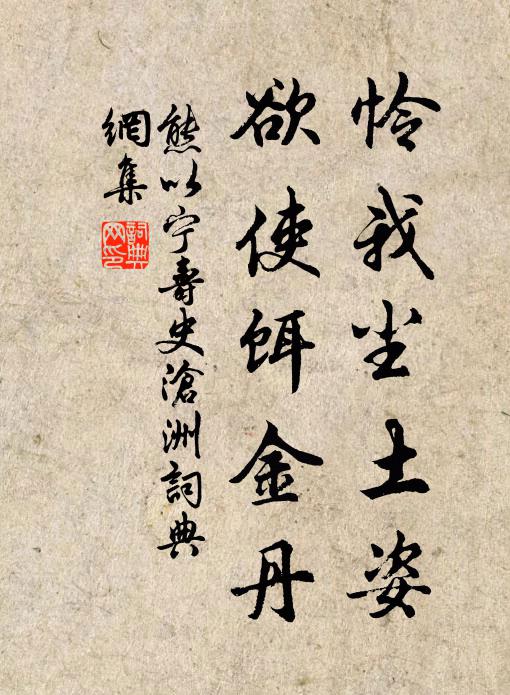 怜我尘土姿
欲使饵金丹
熊以宁寿史沧洲詞典
網集
詞典
网印